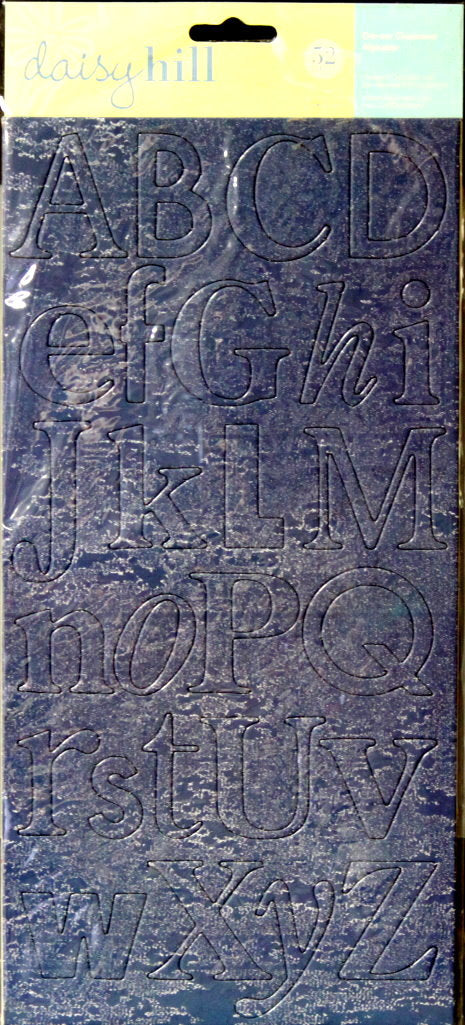 daisy hill
52
A B C D
e f G h i
J k L M
n o P Q
r s t U v
w X y Z